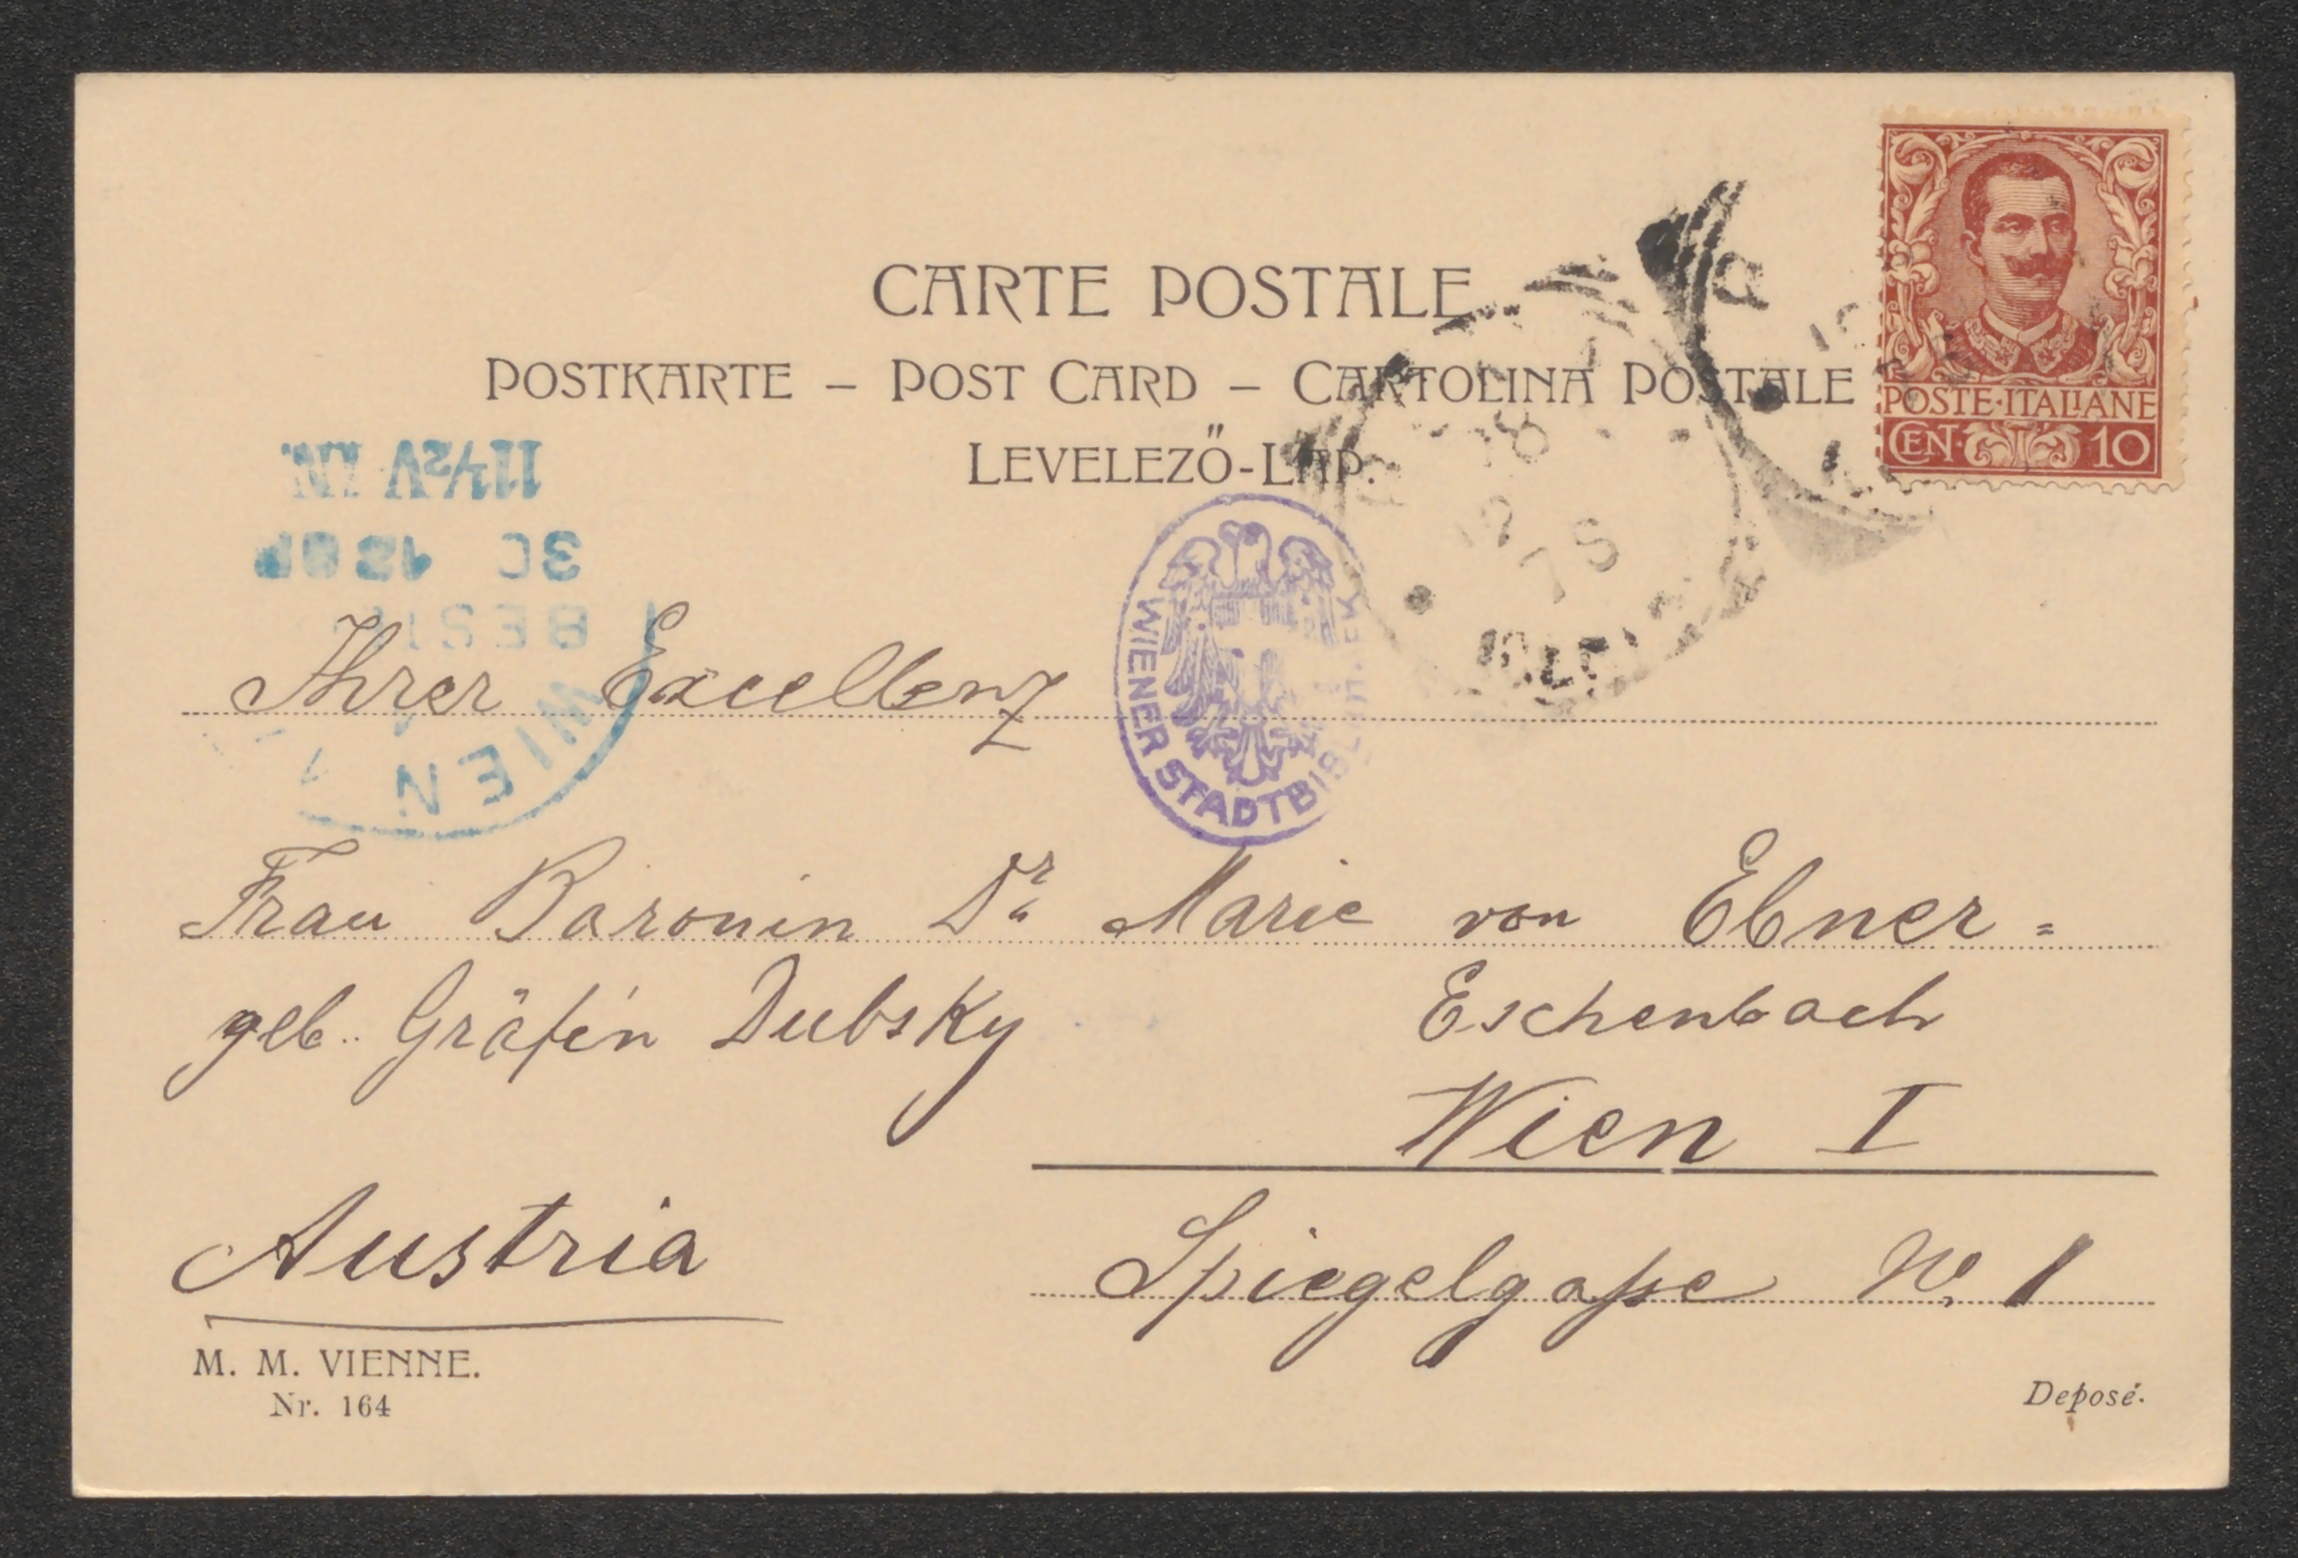 CARTE POSTALE
POSTKARTE – POST CARD – CARTOLINA POSTALE
LEVELEZŐ-LAP.
POSTE·ITALIANE
CEN·10
11½V
30 12
BEST
WIEN 1
WIENER STADTBIBLIOTHEK
Ihrer Excellenz
Frau Baronin Dr Marie von Ebner=
geb. Gräfin Dubsky Eschenbach
Wien I
Austria Spiegelgaſse No. 1
M. M. VIENNE.
Nr. 164
Deposé.